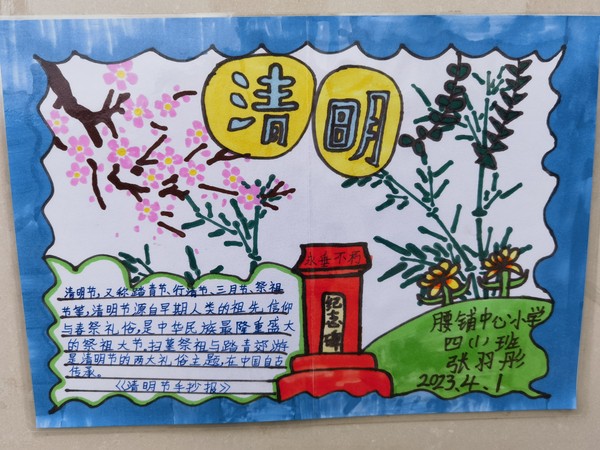 清明
清明节,又称踏青节、行清节、三月节、祭祖
节等,清明节源自早期人类的祖先信仰
与春祭礼俗,是中华民族最隆重盛大
的祭祖大节。扫墓祭祖与踏青郊游
是清明节的两大礼俗主题,在中国自古
传承。
《清明节手抄报》
永垂不朽
纪念碑
腰铺中心小学
四(1)班
张羽彤
2023.4.1